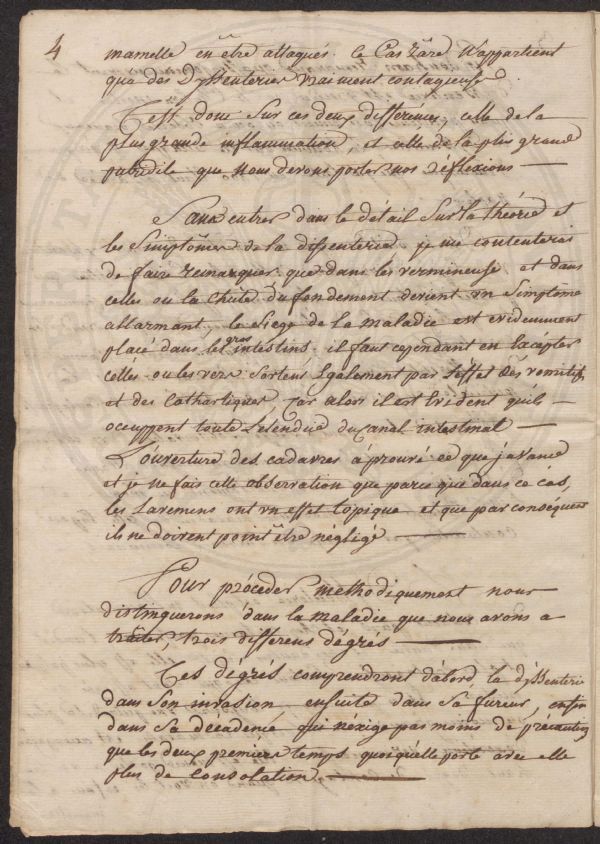 4
mamelle en être attaqués. ce Cas rare n'appartient
que des Dyssenteries vraiment contagieuse.
C'est donc sur ces deux différences, celle de la
plus grande inflammation, et celle de la plus grand
putridité que nous devons porter nos réflexions —
Sans entrer dans le détail Sur la théorie et
les Simptômes de la dissenterie je me contenterai
de faire remarquer que dans les vermineuse et dans
celles ou la Chute du fondement devient un Simptôme
allarmant, le Siege de la maladie est evidemment
placé dans les gros intestins. il faut cependant en Excepter
celles ou les vers Sortent Egalement par l'effet des vomitifs
et des Cathartiques, car alors il est Evident qu'ils —
occuppent toute l'étendue du Canal intestinal —
L'ouverture des cadavres à prouvé ce que j'avance
et je ne fais cette observation que parce que dans ce cas,
les Lavemens ont un effet topique et que par conséquent
ils ne doivent point être négligé —
Pour procéder méthodiquement nous
distinguerons dans la maladie que nous avons a
traiter, trois différens dégrés —
Ces dégrés comprendront d'abord la dÿssenterie
dans Son invasion ensuite dans Sa fureur, enfin
dans Sa décadence qui n'éxige pas moins de précautions
que les deux premiers temps quoiqu'elle porte avec elle
plus de Consolation. —